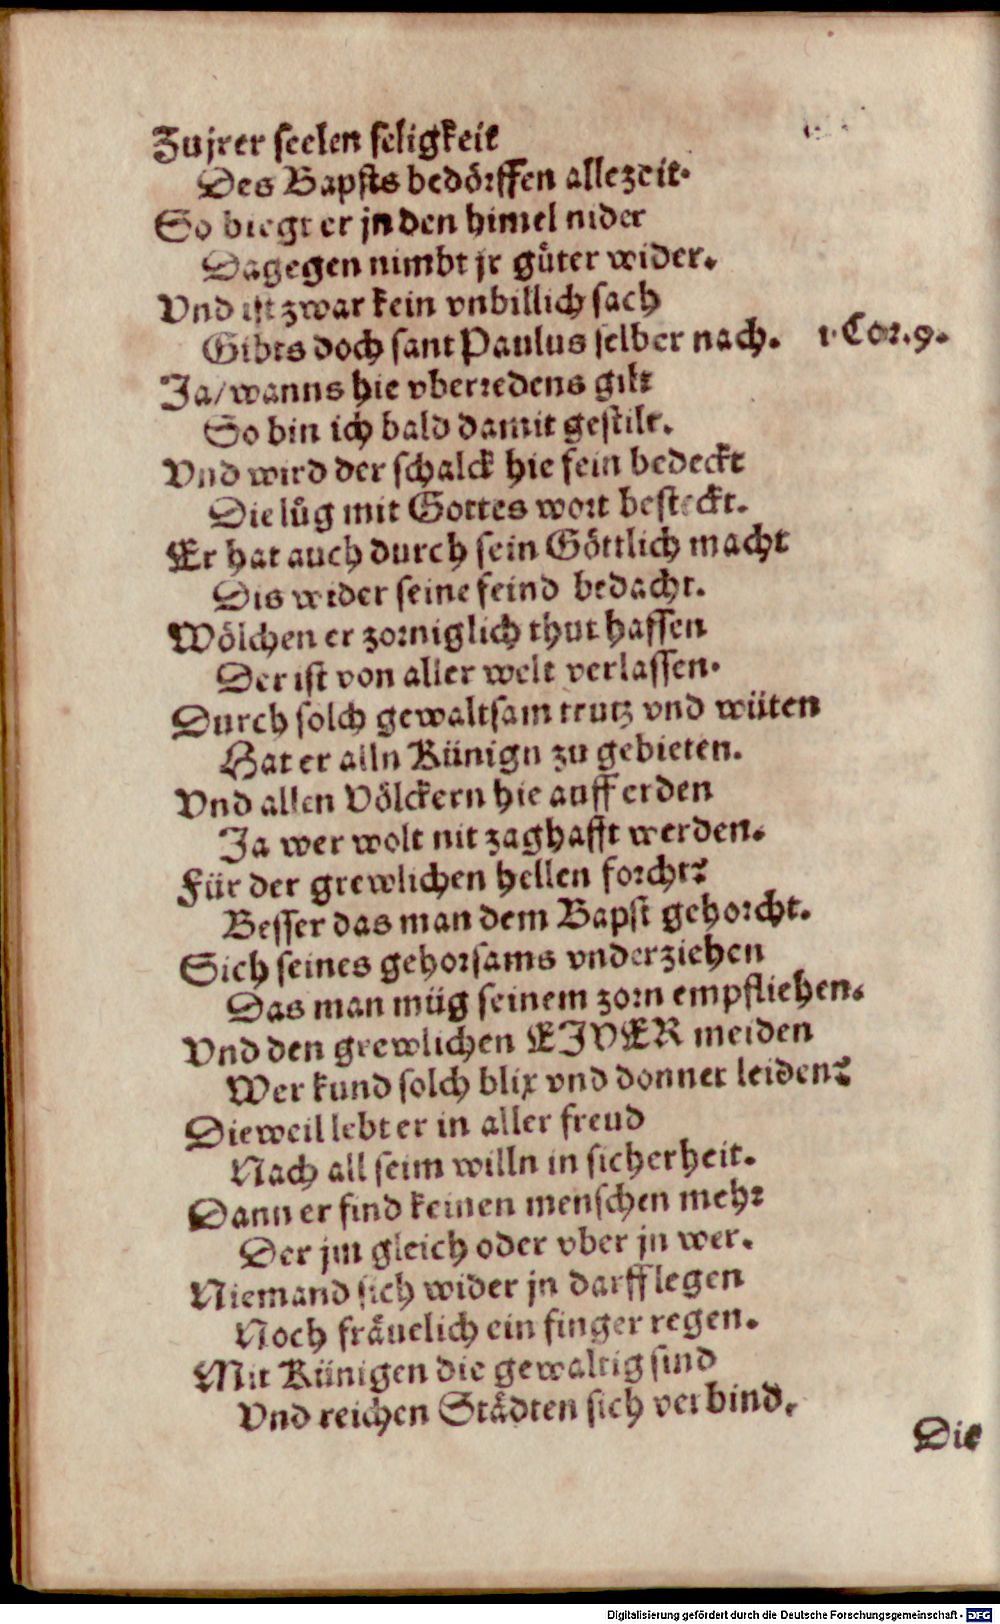 Zu jrer seelen seligkeit
Des Bapsts bedörffen allezeit.
So biegt er jn den himel nider
Dagegen nimbt jr güter wider.
Vnd ist zwar kein vnbillich sach
Gibts doch sant Paulus selber nach. 1. Cor. 9.
Ja/ wanns hie vberredens gilt
So bin ich bald damit gestilt.
Vnd wird der schalck hie fein bedeckt
Die lüg mit Gottes wort besteckt.
Er hat auch durch sein Göttlich macht
Dis wider seine feind bedacht.
Wölchen er zorniglich thut hassen
Der ist von aller welt verlassen.
Durch solch gewaltsam trutz vnd wüten
Hat er alln Künign zu gebieten.
Vnd allen Völckern hie auff erden
Ja wer wolt nit zaghafft werden.
Für der grewlichen hellen forcht?
Besser das man dem Bapst gehorcht.
Sich seines gehorsams vnderziehen
Das man müg seinem zorn empfliehen.
Vnd den grewlichen EIVER meiden
Wer kund solch blix vnd donner leiden?
Dieweil lebt er in aller freud
Nach all seim willn in sicherheit.
Dann er find keinen menschen mehr
Der jm gleich oder vber jn wer.
Niemand sich wider jn darff legen
Noch fräuelich ein finger regen.
Mit Künigen die gewaltig sind
Vnd reichen Städten sich verbind.
Die
Digitalisierung gefördert durch die Deutsche Forschungsgemeinschaft - DFG